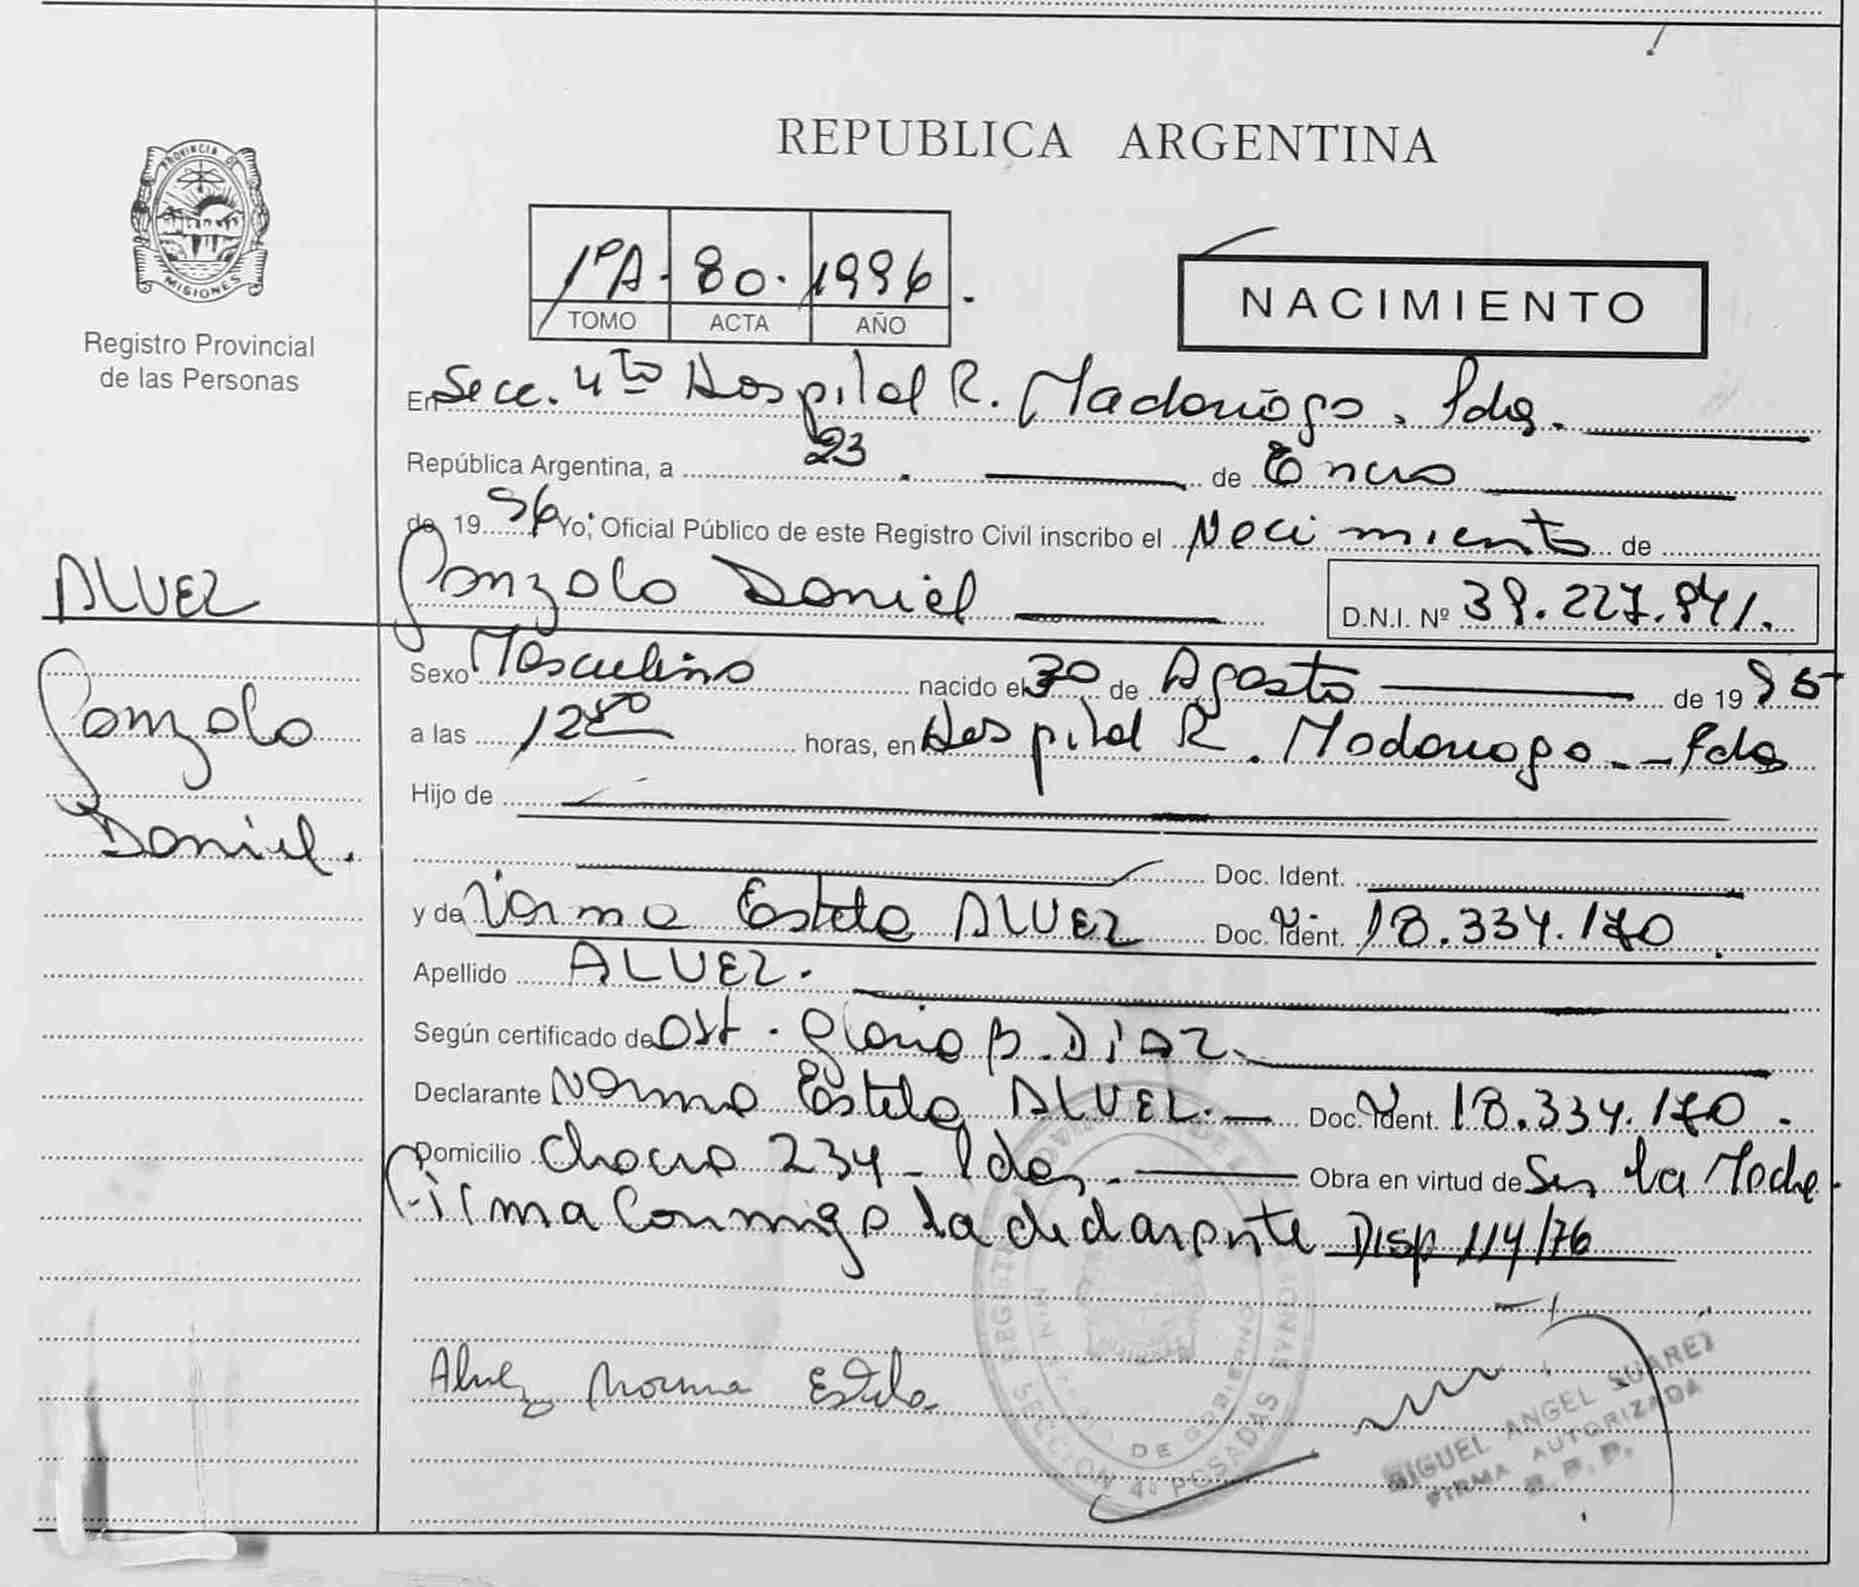 REPUBLICA ARGENTINA
PROVINCIA DE
MISIONES
Registro Provincial
de las Personas
1ºA. 80. 1996.
TOMO ACTA AÑO
NACIMIENTO
En Secc. 4to Hospital R. Madariaga. Pdas.
República Argentina, a 23 de Enero
de 1996 Yo, Oficial Público de este Registro Civil inscribo el Nacimiento de
ALVEZ
Gonzalo Daniel
Gonzalo Daniel D.N.I. Nº 39.227.841.
Sexo Masculino nacido el 30 de Agosto de 1995
a las 12 horas, en Hospital R. Madariaga - Pdas
Hijo de
Doc. Ident.
y de Norma Estela ALVEZ Doc. Ident. 18.334.170
Apellido ALVEZ.
Según certificado de Obst. Gloria B. Díaz
Declarante Norma Estela ALVEZ. Doc. Ident. 18.334.170.
Domicilio Chacra 234 - Pdas. Obra en virtud de Ser la Madre.
Firma Conmigo la declarante Disp 114/76
Alvez Norma Estela
DE GOBIERNO
SECCION 4ª POSADAS
MIGUEL ANGEL SUAREZ
FIRMA AUTORIZADA
R. P. P.